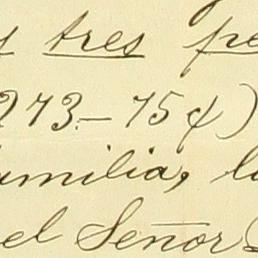 y tres pe
273.–75¢)
amilia, l
el Señor